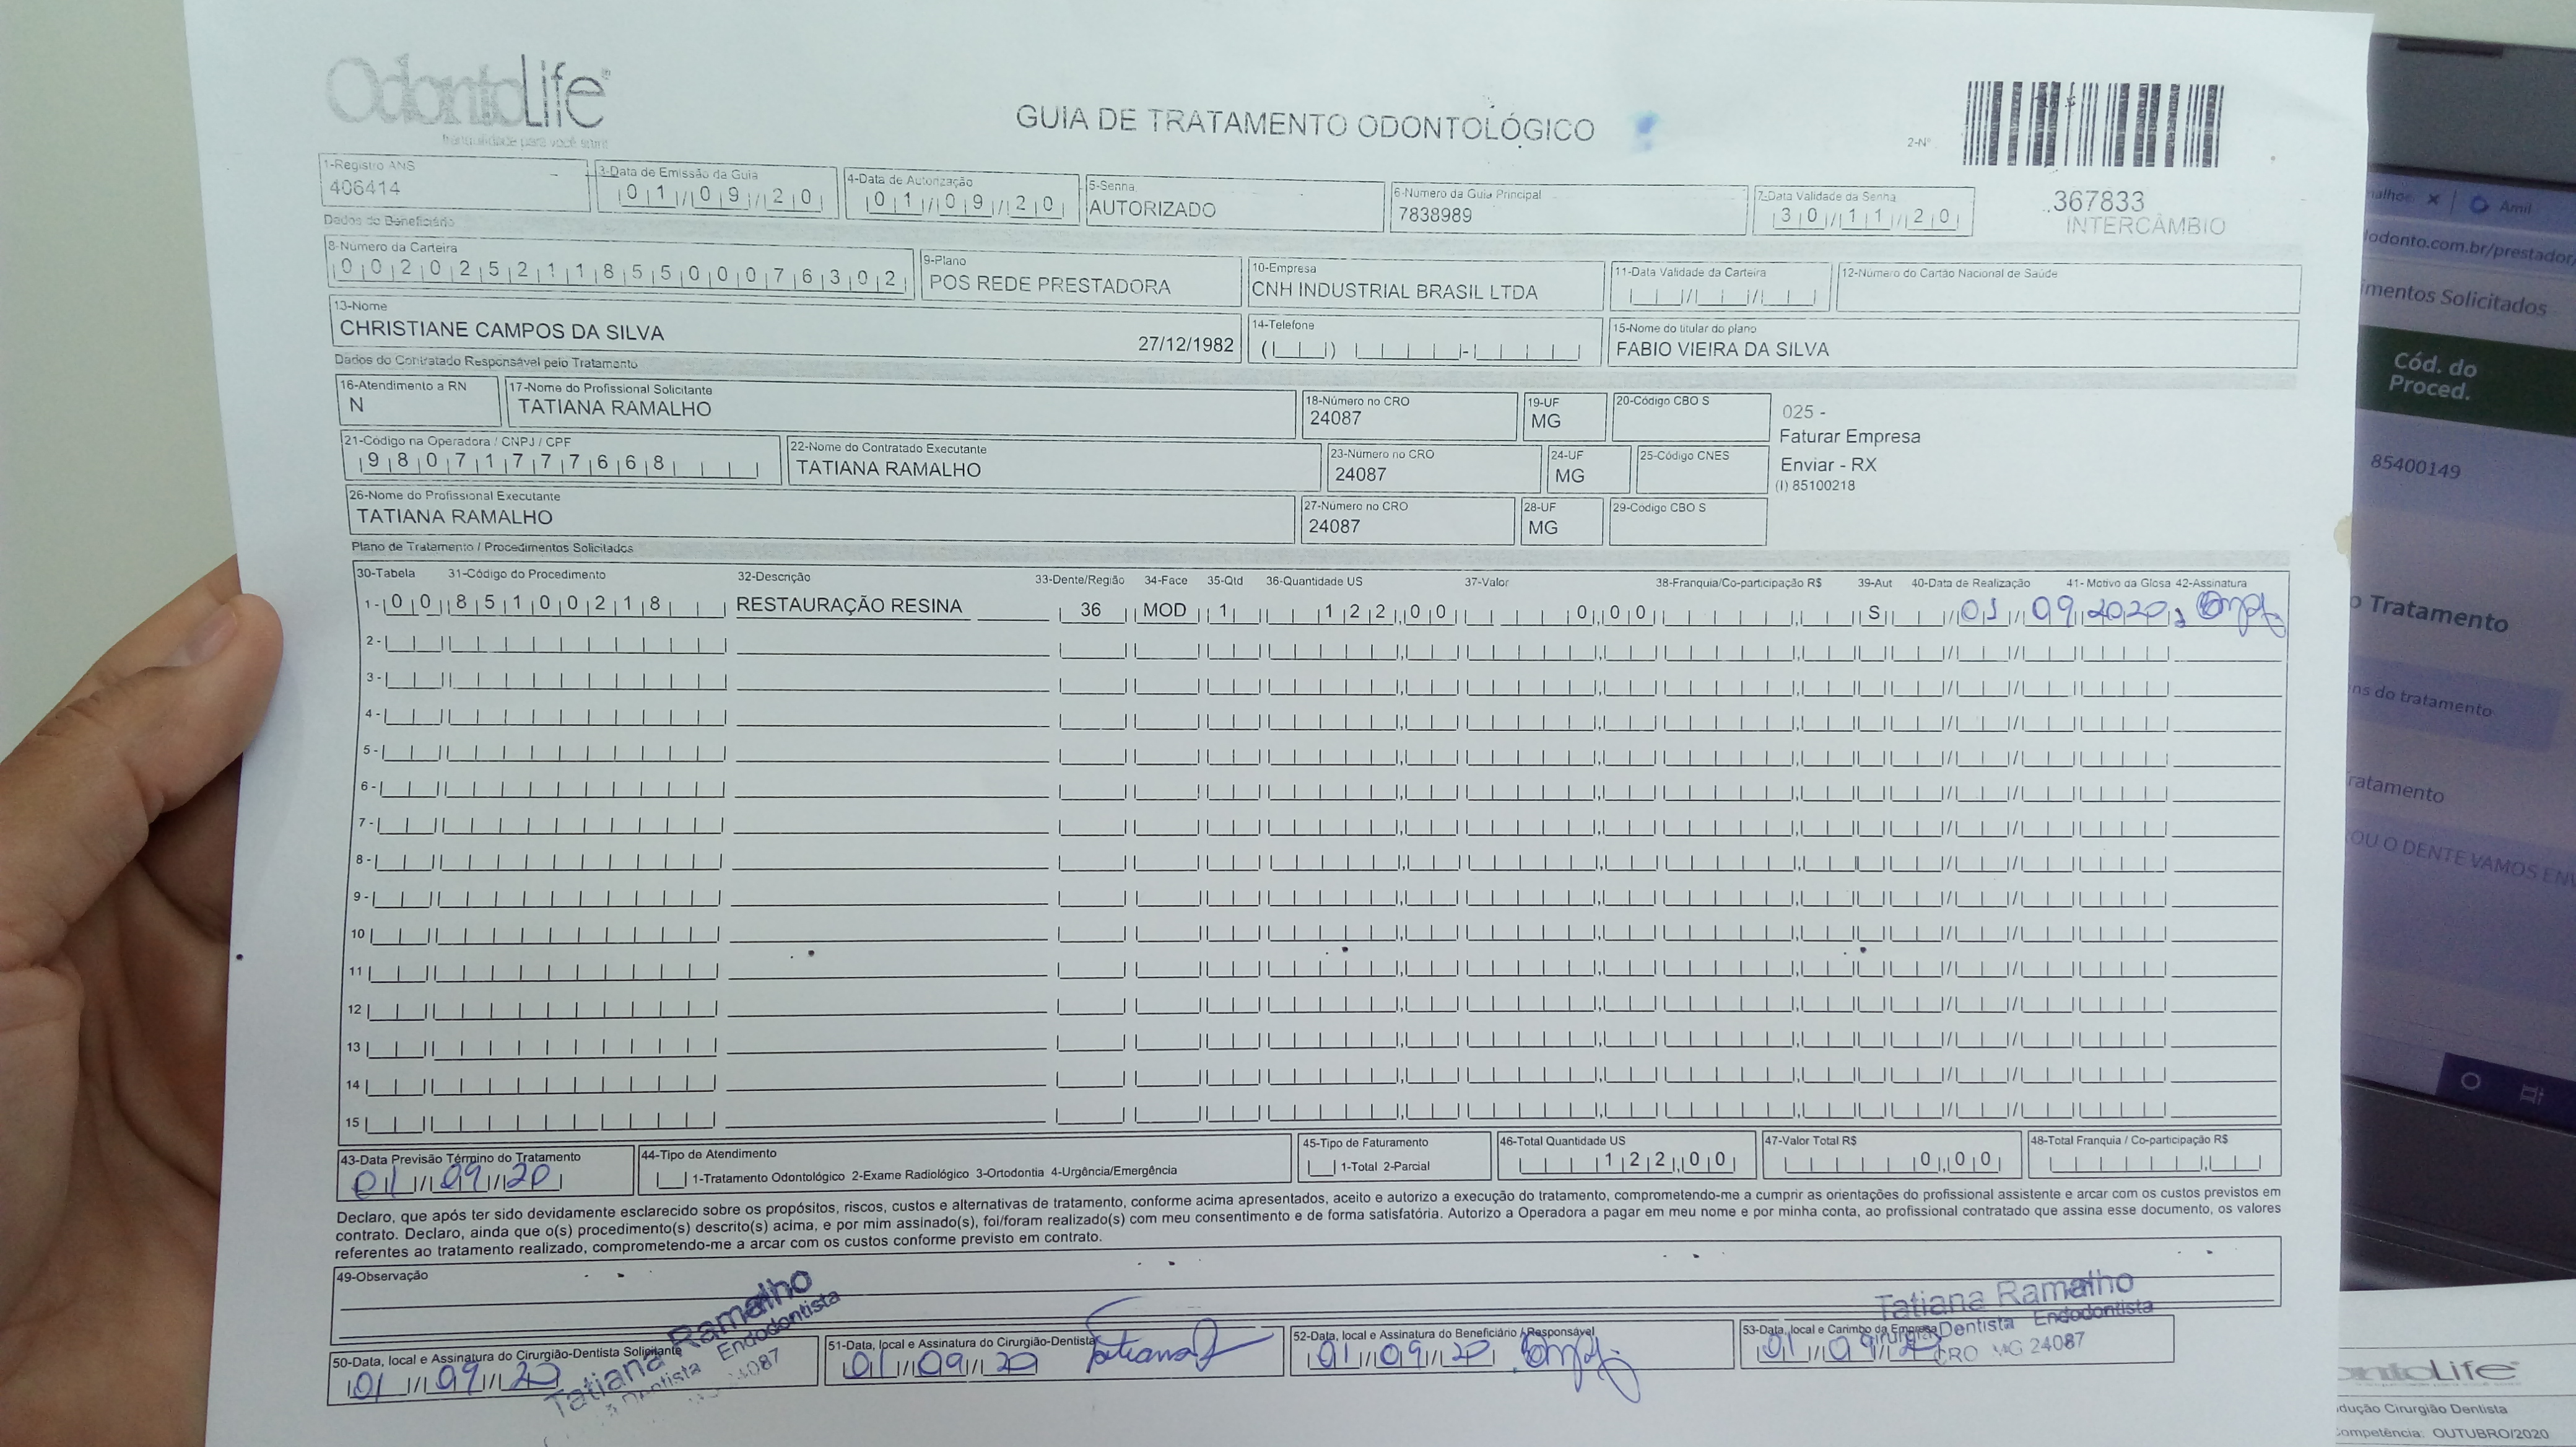 OdontoLife
tranquilidade para você sorrir
GUIA DE TRATAMENTO ODONTOLÓGICO
2-Nº
367833
INTERCÂMBIO
1-Registro ANS
406414
3-Data de Emissão da Guia
01/09/20
4-Data de Autorização
01/09/20
5-Senha
AUTORIZADO
6-Numero da Guia Principal
7838989
7-Data Validade da Senha
30/11/20
Dados do Beneficiário
8-Numero da Carteira
00202521185500076302
9-Plano
POS REDE PRESTADORA
10-Empresa
CNH INDUSTRIAL BRASIL LTDA
11-Data Validade da Carteira
12-Número do Cartão Nacional de Saúde
13-Nome
CHRISTIANE CAMPOS DA SILVA 27/12/1982
14-Telefone
15-Nome do titular do plano
FABIO VIEIRA DA SILVA
Dados do Contratado Responsável pelo Tratamento
16-Atendimento a RN
N
17-Nome do Profissional Solicitante
TATIANA RAMALHO
18-Número no CRO
24087
19-UF
MG
20-Código CBO S
025 -
Faturar Empresa
Enviar - RX
(I) 85100218
21-Código na Operadora / CNPJ / CPF
98071777668
22-Nome do Contratado Executante
TATIANA RAMALHO
23-Número no CRO
24087
24-UF
MG
25-Código CNES
26-Nome do Profissional Executante
TATIANA RAMALHO
27-Número no CRO
24087
28-UF
MG
29-Código CBO S
Plano de Tratamento / Procedimentos Solicitados
30-Tabela 31-Código do Procedimento 32-Descrição 33-Dente/Região 34-Face 35-Qtd 36-Quantidade US 37-Valor 38-Franquia/Co-participação R$ 39-Aut 40-Data de Realização 41- Motivo da Glosa 42-Assinatura
1- 00 85100218 RESTAURAÇÃO RESINA 36 MOD 1 122,00 0,00 S 01/09/2020
2-
3-
4-
5-
6-
7-
8-
9-
10
11
12
13
14
15
43-Data Previsão Término do Tratamento
01/09/20
44-Tipo de Atendimento
1-Tratamento Odontológico 2-Exame Radiológico 3-Ortodontia 4-Urgência/Emergência
45-Tipo de Faturamento
1-Total 2-Parcial
46-Total Quantidade US
122,00
47-Valor Total R$
0,00
48-Total Franquia / Co-participação R$
Declaro, que após ter sido devidamente esclarecido sobre os propósitos, riscos, custos e alternativas de tratamento, conforme acima apresentados, aceito e autorizo a execução do tratamento, comprometendo-me a cumprir as orientações do profissional assistente e arcar com os custos previstos em
contrato. Declaro, ainda que o(s) procedimento(s) descrito(s) acima, e por mim assinado(s), foi/foram realizado(s) com meu consentimento e de forma satisfatória. Autorizo a Operadora a pagar em meu nome e por minha conta, ao profissional contratado que assina esse documento, os valores
referentes ao tratamento realizado, comprometendo-me a arcar com os custos conforme previsto em contrato.
49-Observação
50-Data, local e Assinatura do Cirurgião-Dentista Solicitante
01/09/20
Tatiana Ramalho
Dentista Endodontista
24087
51-Data, local e Assinatura do Cirurgião-Dentista
01/09/20 Tatiana
52-Data, local e Assinatura do Beneficiário / Responsável
01/09/20
53-Data, local e Carimbo da Empresa
01/09/20
Tatiana Ramalho
Cirurgiã Dentista Endodontista
CRO MG 24087
Amil
odonto.com.br/prestador/
imentos Solicitados
Cód. do
Proced.
85400149
o Tratamento
ns do tratamento
ratamento
OU O DENTE VAMOS ENV
ontoLife
dução Cirurgião Dentista
ompetência: OUTUBRO/2020